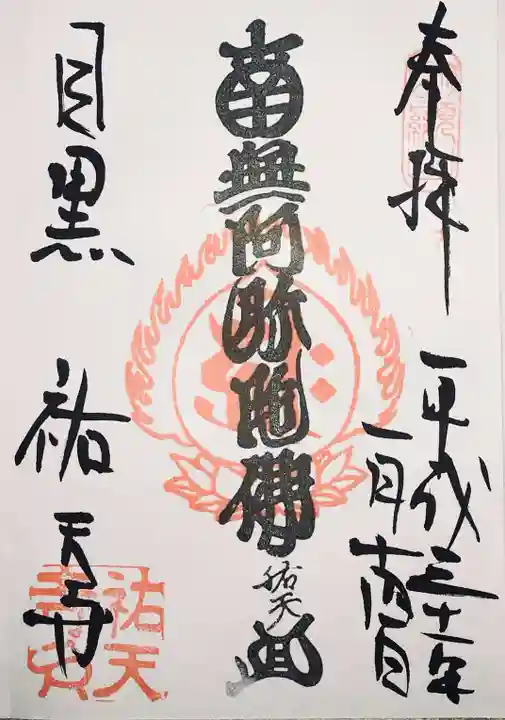 奉拝
平成三十一年
一月十六日
南無阿弥陀佛
祐天
目黒
祐天寺